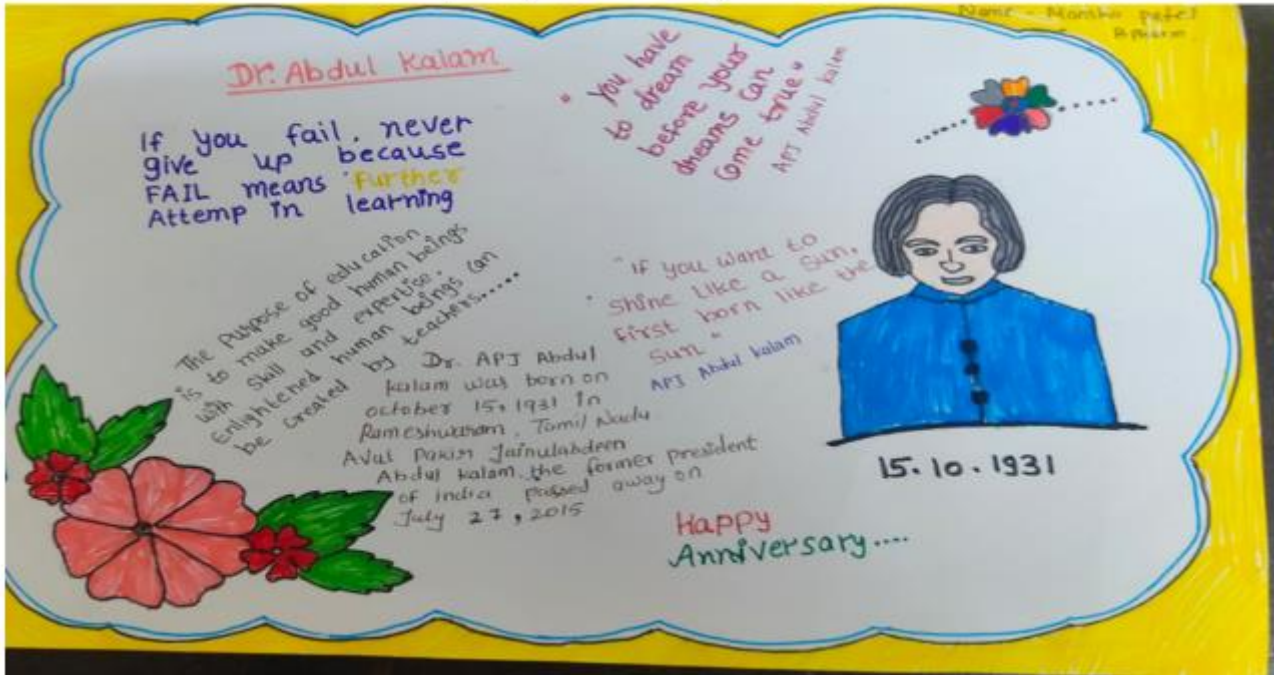 Name - Mansha Patel
B pharm
Dr. Abdul Kalam
If you fail, never
give up because
FAIL means "Further
Attemp in learning
" You have
to dream
before your
dreams can
Come true"
APJ Abdul Kalam
The Purpose of education
is to make good human beings
with skill and expertise.
Enlightened human beings can
be created by teachers......
"If you want to
Shine Like a Sun,
first born like the
Sun"
APJ Abdul Kalam
Dr. APJ Abdul
Kalam was born on
october 15, 1931 in
Rameshwaram, Tamil Nadu
Avul Pakir Jainulabdeen
Abdul Kalam, the former president
of India passed away on
July 27, 2015
15.10.1931
Happy
Anniversary....